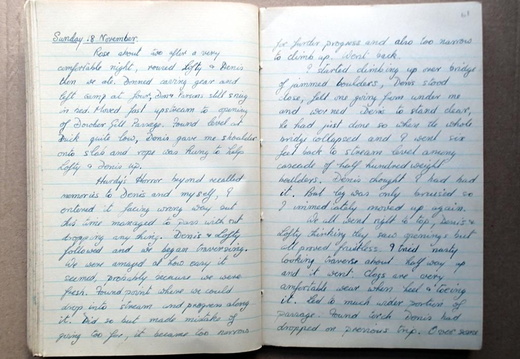 Sunday 18 November.
Rose about two after a very
comfortable night, roused Lofty & Denis
then we ate. Donned caving gear and
left camp at four, Dave Parsons still snug
in bed. Moved fast upstream to opening
of Dowber Gill Passage. Found level in
Back quite low, Denis gave me shoulder
onto slab and rope was hung to help
Lofty & Denis up.
Hurdy's Horror beyond recalled
memories to Denis and myself, I
entered it facing wrong way but
this time managed to pass without
dropping any thing. Denis & Lofty
followed and we began traversing.
We were amazed at how easy it
seemed, probably because we were
fresh. Found point where we could
drop into stream and progress along
it. Did so but made mistake of
going too far, it became too narrow
61
for further progress and also too narrow
to climb up. Went back.
I started climbing up over bridge
of jammed boulders, Denis stood
close, felt one going from under me
and warned Denis to stand clear,
he had just done so when the whole
bridge collapsed and I went six
feet back to stream level among
cascade of half hundredweight
boulders. Denis thought I had had
it. But leg was only bruised so
I immediately moved up again.
We all went right to top, Denis &
Lofty thinking they saw openings but
all proved fruitless. I tried nasty
looking traverse about half way up
and it went. Clogs are very
comfortable wear when heel & toeing
it. Led to much wider portion of
passage. Found torch Denis had
dropped on previous trip. Cross some